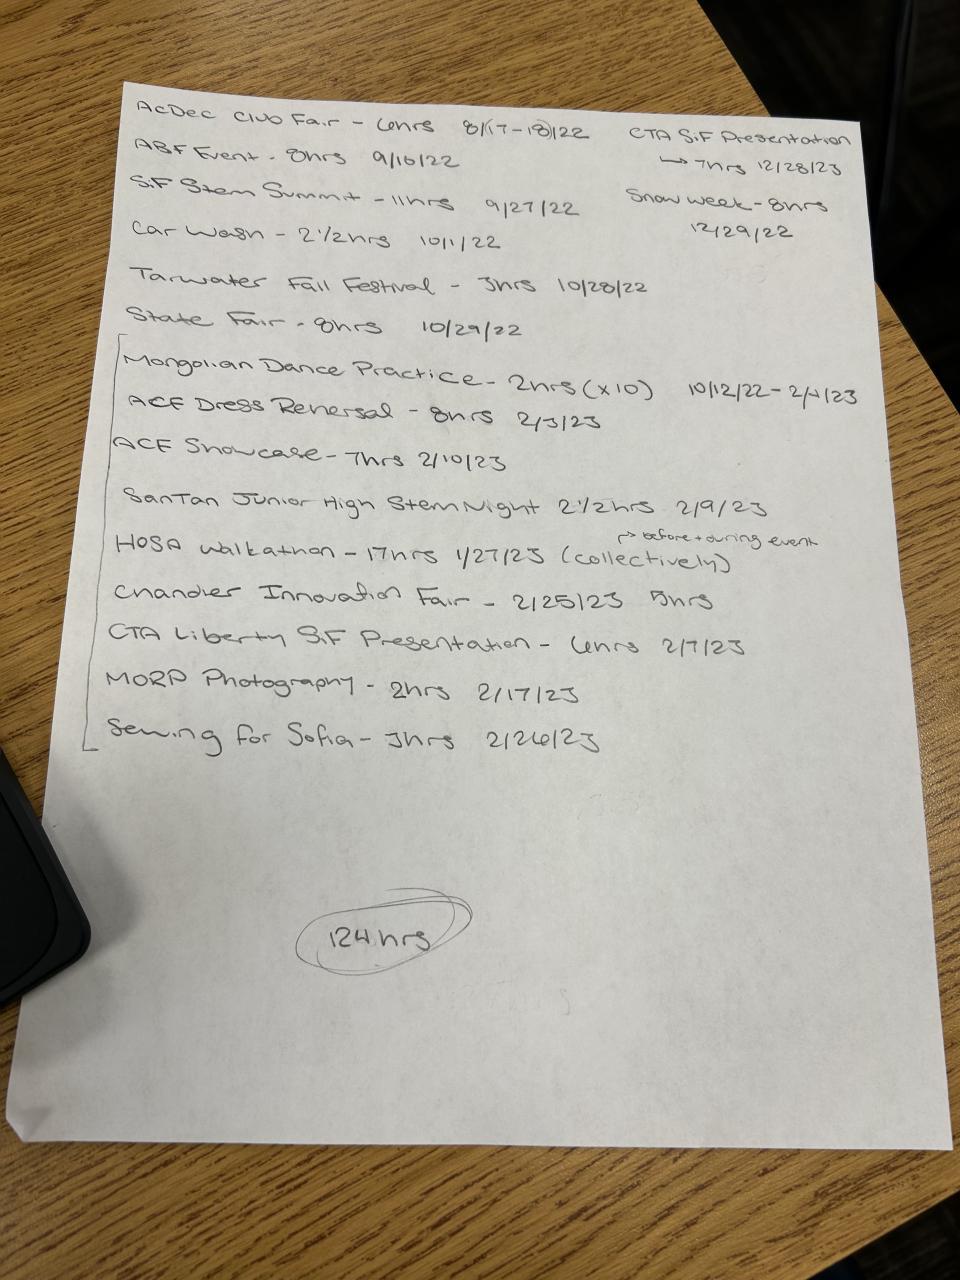 AcDec Club Fair - 6hrs 8/(17-18)/22
ABF Event - 8hrs 9/10/22
SiF Stem Summit - 11hrs 9/27/22
Car Wash - 2 1/2hrs 10/1/22
Tarwater Fall Festival - 3hrs 10/28/22
State Fair - 8hrs 10/29/22
Mongolian Dance Practice - 2hrs (x10) 10/12/22 - 2/1/23
ACF Dress Rehersal - 8hrs 2/3/23
ACF Showcase - 7hrs 2/10/23
SanTan Junior High Stem Night 2 1/2hrs 2/9/23
→ before + during event
HOSA Walkathon - 17hrs 1/27/23 (collectively)
Chandler Innovation Fair - 2/25/23 5hrs
CTA Liberty SiF Presentation - 6hrs 2/7/23
MORP Photography - 2hrs 2/17/23
Sewing for Sofia - 3hrs 2/26/23
124 hrs
CTA SiF Presentation
→ 7hrs 12/28/23
Snow week - 8hrs
12/29/22